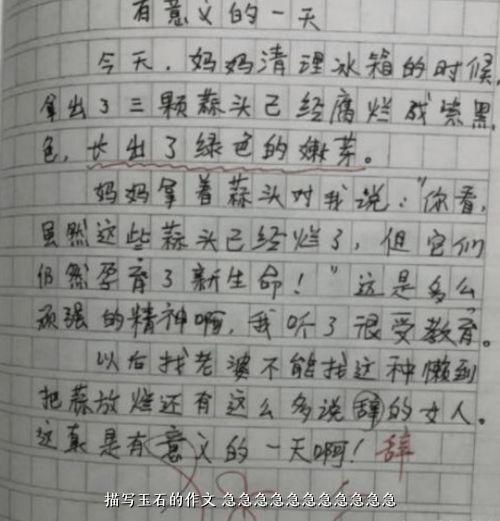 有意义的一天
今天，妈妈清理冰箱的时候，
拿出了三颗蒜头已经腐烂成紫黑
色，长出了绿色的嫩芽。
妈妈拿着蒜头对我说："你看，
虽然这些蒜头已经烂了，但它们
仍然孕育了新生命！"这是多么
顽强的精神啊，我听了很受教育。
以后找老婆不能找这种懒到
把蒜放烂还有这么多说辞的女人。
这真是有意义的一天啊！辞
描写玉石的作文 急急急急急急急急急急急